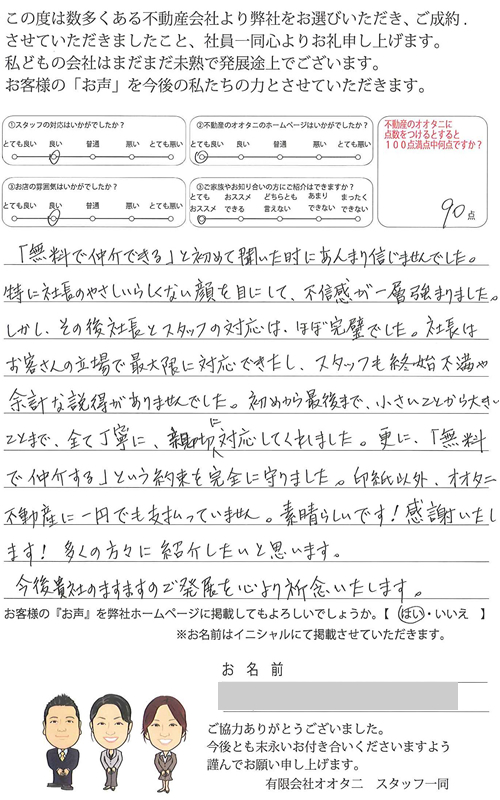 この度は数多くある不動産会社より弊社をお選びいただき、ご成約.
させていただきましたこと、社員一同心よりお礼申し上げます。
私どもの会社はまだまだ未熟で発展途上でございます。
お客様の「お声」を今後の私たちの力とさせていただきます。
①スタッフの対応はいかがでしたか?
とても良い 良い 普通 悪い とても悪い
②不動産のオオタニのホームページはいかがでしたか?
とても良い 良い 普通 悪い とても悪い
不動産のオオタニに
点数をつけるとすると
100点満点中何点ですか?
90点
③お店の雰囲気はいかがでしたか?
とても良い 良い 普通 悪い とても悪い
③ご家族やお知り合いの方にご紹介はできますか?
とても おススメ どちらとも あまり まったく
おススメ できる 言えない できない できない
「無料で仲介できる」と初めて聞いた時にあんまり信じませんでした。
特に社長のやさしいらしくない顔を目にして、不信感が一層強まりました。
しかし、その後社長とスタッフの対応は、ほぼ完璧でした。社長は
お客さんの立場で最大限に対応できたし、スタッフも終始不満や
余計な説得がありませんでした。初めから最後まで、小さいことから大きい
ことまで、全て丁寧に、親切に対応してくれました。更に、「無料
で仲介する」という約束を完全に守りました。印紙以外、オオタニ
不動産に一円でも支払っていません。素晴らしいです!感謝いたし
ます!多くの方々に紹介したいと思います。
今後貴社のますますのご発展を心より祈念いたします。
お客様の『お声』を弊社ホームページに掲載してもよろしいでしょうか。【 はい・いいえ 】
※お名前はイニシャルにて掲載させていただきます。
お 名 前
ご協力ありがとうございました。
今後とも末永いお付き合いくださいますよう
謹んでお願い申し上げます。
有限会社オオタニ スタッフ一同